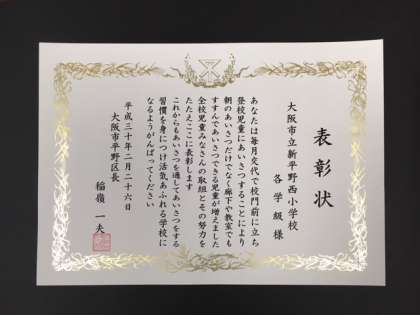 表彰状
大阪市立新平野西小学校
各学級様
あなたは毎月交代で校門前に立ち
登校児童にあいさつすることにより
朝のあいさつだけでなく廊下や教室でも
すすんであいさつできる児童が増えました
全校児童みなさんの取組とその努力を
たたえここに表彰します
これからもあいさつを通してあいさつをする
習慣を身につけ活気あふれる学校に
なるようがんばってください
平成三十年二月二十六日
大阪市平野区長
稲嶺一夫